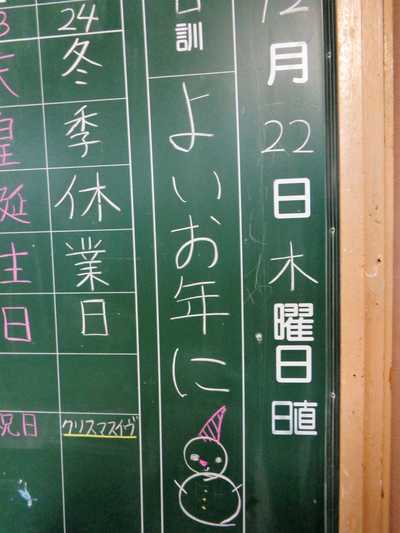 12月22日木曜日
日直
日訓
よいお年に
24
冬季休業日
クリスマスイヴ
23
天皇誕生日
祝日